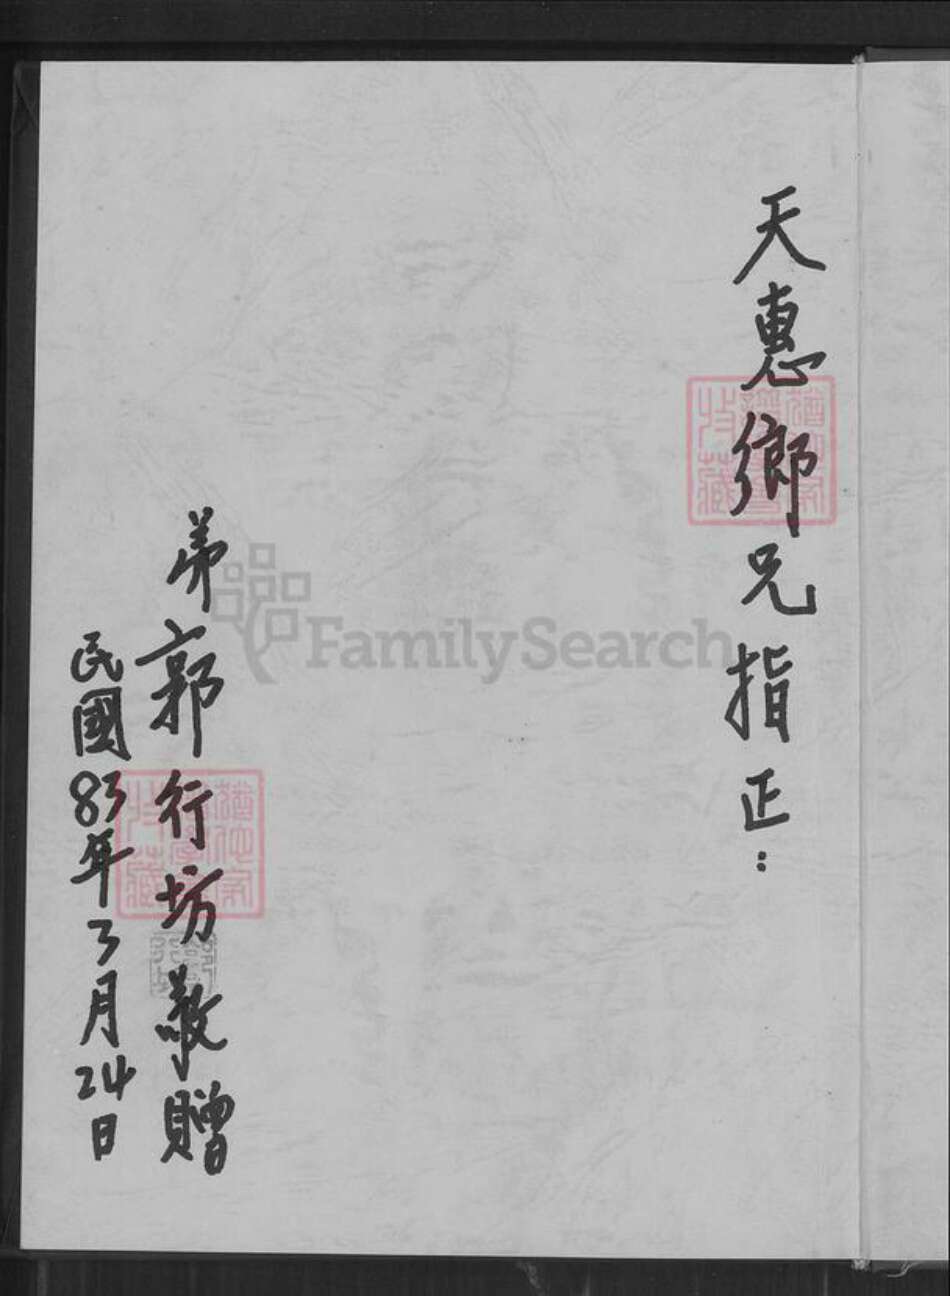 天惠鄉兄指正：
弟郭行坊敬贈
民國83年3月24日
FamilySearch